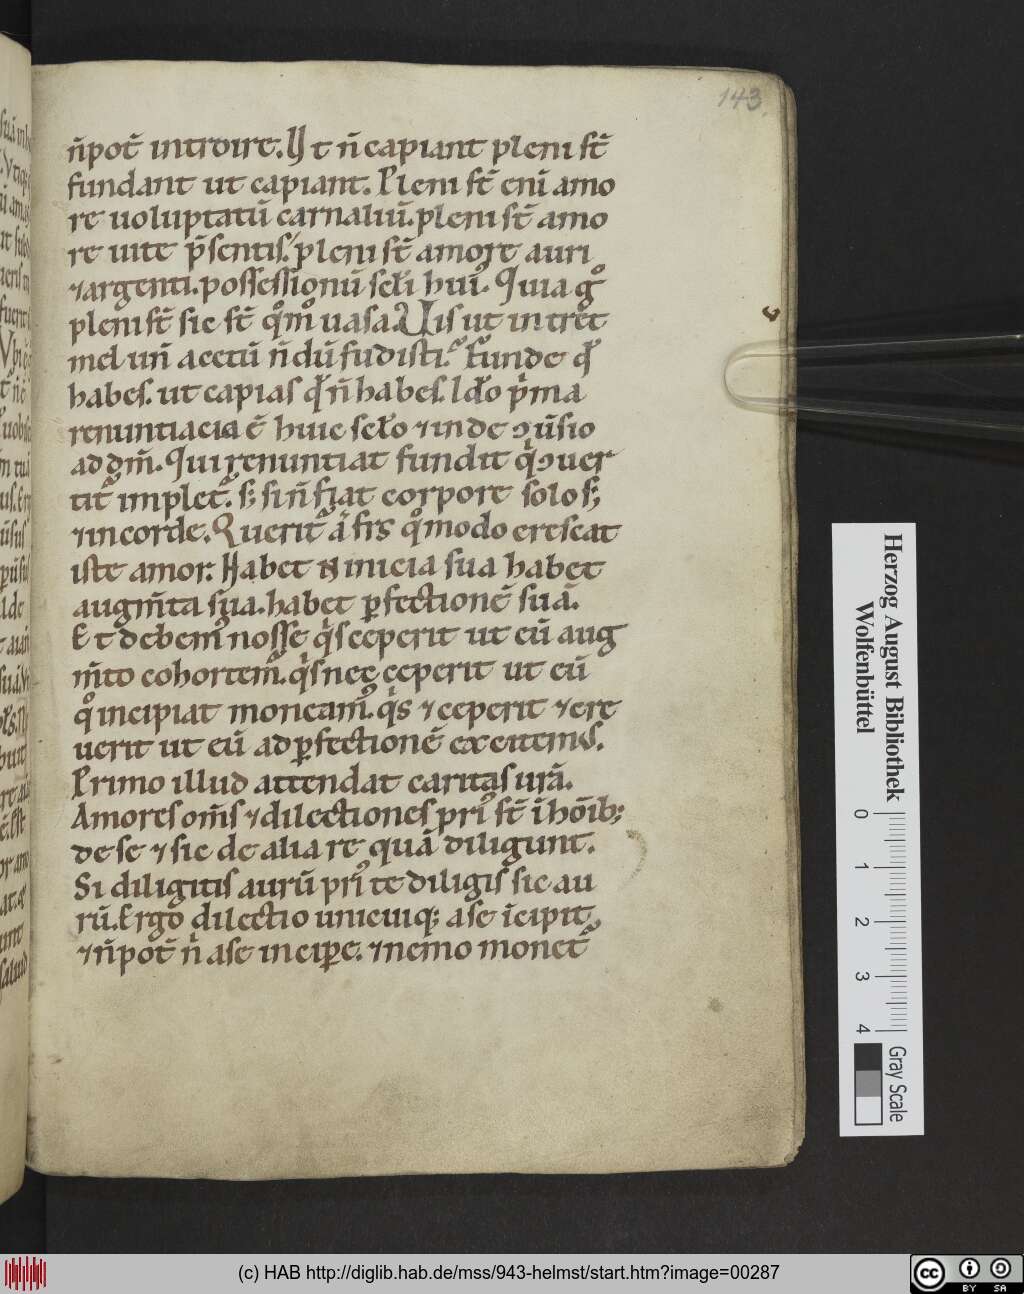 143
n̄pot̄ introire. Ut n̄ capiant pleni st̄
fundant ut capiant. Pleni st̄ eni᷑ amo
re uoluptatū carnaliū. pleni st̄ amo
re uite p̄sentis. pleni st̄ amore auri
⁊argenti. possessionū scł̄i hui᷒. Quia g̊
pleni st̄ sic st̄ qͦmͦ uasa. Uis ut intret
mel un̄ acetū n̄dū fudisti. Funde qđ
habes. ut capias qđ n̄ habes. Iđo p̄ma
renuntiacia ē huic scł̄o ⁊ inde ↄuersio
ad dm̄. Qui renuntiat fundit q̇ ↄuer
tit᷑ implet᷑. s; si n̄ fiat corpore solo s;
⁊in corde. Querit᷑ ā frs qͦmodo crescat
iste amor. Habet N inicia sua habet
augm̄ta sua. habet ꝑfectionē suā.
Et debem᷒ nosse q̇s ceperit ut eū aug
m̄to cohortem᷒. q̇s nec ceperit ut eū
qͦ incipiat moneam᷒. q̇s ⁊ ceperit ⁊cre
uerit ut eū ad ꝑfectionē excitem᷒.
Primo illud attendat caritas ur̄a.
Amores om̄s ⁊dilectiones pri᷒ st̄ ī hōīb;
de se ⁊ sic de alia re quā diligunt.
Si diligitis aurū pri᷒ te diligis sic au
rū. Ergo dilectio unicuiq; a se īcipit.
⁊n̄pot̄ n̄ a se incipe. ⁊nemo monet᷑
Herzog August Bibliothek
Wolfenbüttel
0 1 2 3 4
Gray Scale
(c) HAB http://diglib.hab.de/mss/943-helmst/start.htm?image=00287
cc BY SA